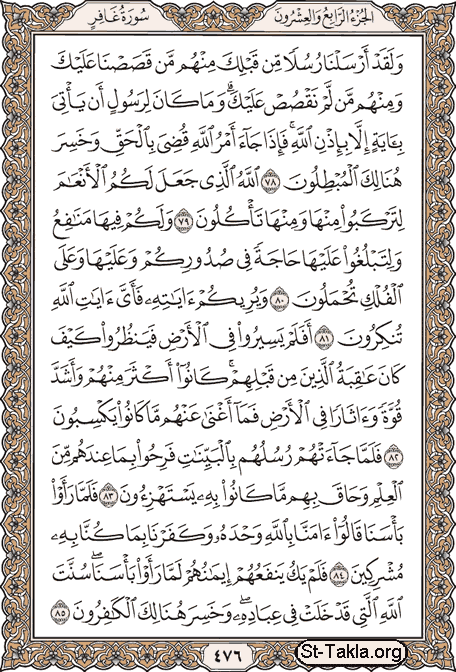 سُورَةُ غَافِرٍ الجُزْءُ الرَّابِعُ وَالعِشْرُونَ
وَلَقَدْ أَرْسَلْنَا رُسُلًا مِّن قَبْلِكَ مِنْهُم مَّن قَصَصْنَا عَلَيْكَ
وَمِنْهُم مَّن لَّمْ نَقْصُصْ عَلَيْكَ ۗ وَمَا كَانَ لِرَسُولٍ أَن يَأْتِىَ
بِـَٔايَةٍ إِلَّا بِإِذْنِ ٱللَّهِ ۚ فَإِذَا جَآءَ أَمْرُ ٱللَّهِ قُضِىَ بِٱلْحَقِّ وَخَسِرَ
هُنَالِكَ ٱلْمُبْطِلُونَ ٧٨ ٱللَّهُ ٱلَّذِى جَعَلَ لَكُمُ ٱلْأَنْعَٰمَ
لِتَرْكَبُوا۟ مِنْهَا وَمِنْهَا تَأْكُلُونَ ٧٩ وَلَكُمْ فِيهَا مَنَٰفِعُ
وَلِتَبْلُغُوا۟ عَلَيْهَا حَاجَةً فِى صُدُورِكُمْ وَعَلَيْهَا وَعَلَى
ٱلْفُلْكِ تُحْمَلُونَ ٨٠ وَيُرِيكُمْ ءَايَٰتِهِۦ فَأَىَّ ءَايَٰتِ ٱللَّهِ
تُنكِرُونَ ٨١ أَفَلَمْ يَسِيرُوا۟ فِى ٱلْأَرْضِ فَيَنظُرُوا۟ كَيْفَ
كَانَ عَٰقِبَةُ ٱلَّذِينَ مِن قَبْلِهِمْ ۚ كَانُوٓا۟ أَكْثَرَ مِنْهُمْ وَأَشَدَّ
قُوَّةً وَءَاثَارًا فِى ٱلْأَرْضِ فَمَآ أَغْنَىٰ عَنْهُم مَّا كَانُوا۟ يَكْسِبُونَ
٨٢ فَلَمَّا جَآءَتْهُمْ رُسُلُهُم بِٱلْبَيِّنَٰتِ فَرِحُوا۟ بِمَا عِندَهُم مِّنَ
ٱلْعِلْمِ وَحَاقَ بِهِم مَّا كَانُوا۟ بِهِۦ يَسْتَهْزِءُونَ ٨٣ فَلَمَّا رَأَوْا۟
بَأْسَنَا قَالُوٓا۟ ءَامَنَّا بِٱللَّهِ وَحْدَهُۥ وَكَفَرْنَا بِمَا كُنَّا بِهِۦ
مُشْرِكِينَ ٨٤ فَلَمْ يَكُ يَنفَعُهُمْ إِيمَٰنُهُمْ لَمَّا رَأَوْا۟ بَأْسَنَا ۖ سُنَّتَ
ٱللَّهِ ٱلَّتِى قَدْ خَلَتْ فِى عِبَادِهِۦ ۖ وَخَسِرَ هُنَالِكَ ٱلْكَٰفِرُونَ ٨٥
٤٧٦
St-Takla.org